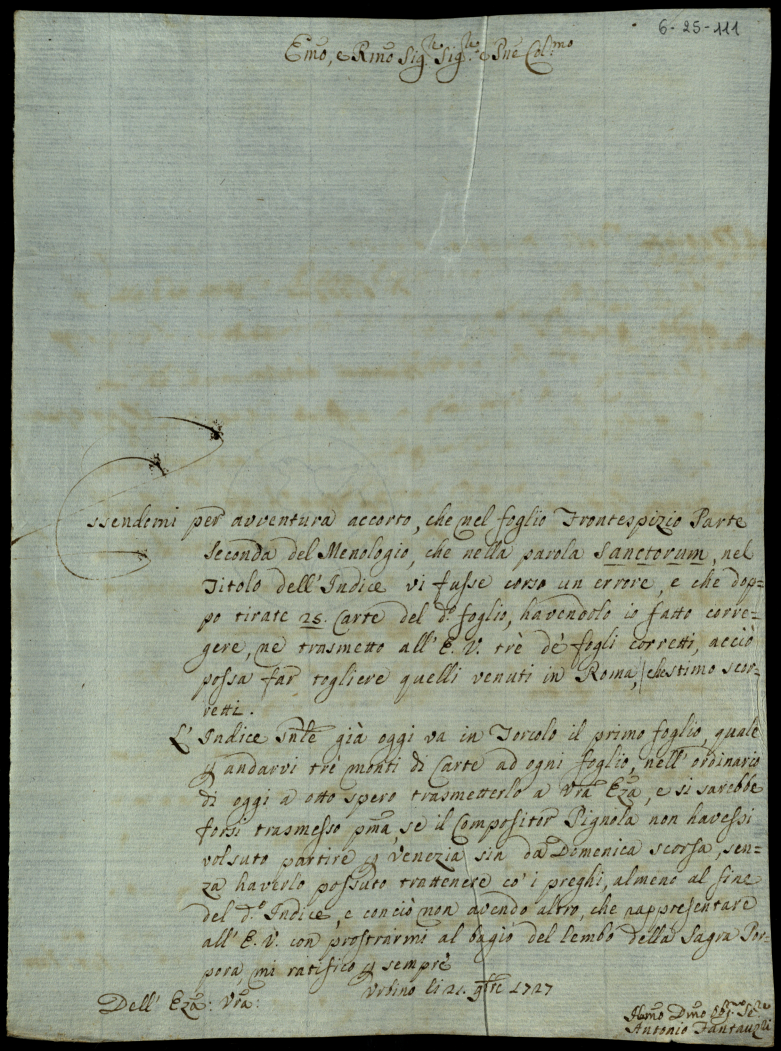 6-25-111
Em̃o, e Rm̃o Sig.re Sig.re e Pñe Col.mo
Essendomi per avventura accorto, che nel foglio Frontespizio Parte
Seconda del Menologio, che nella parola Sanctorum, nel
Titolo dell'Indice vi fusse corso un errore, e che dop=
po tirate 25. Carte del d.o foglio, havendolo io fatto corre=
gere, ne trasmetto all'E. V. trè dè fogli corretti, acciò
possa far togliere quelli venuti in Roma, che stimo scor=
retti.
L'Indice gñle già oggi va in Torcolo il primo foglio, quale
p andarvi trè monti di Carte ad ogni foglio, nell'ordinario
di oggi a otto spero trasmetterlo a Vrã Ezã, e si sarebbe
forsi trasmesso pm̃a, se il Compositor Pignola non havessi
volsuto partire p Venezia sin da Domenica scorsa, sen=
za haverlo possuto trattenere co' i preghi, almeno al fine
del d.o Indice, e con ciò non avendo altro, che rappresentare
all'E. V. con prostrarmi al bagio del lembo della Sagra Por=
pora mi ratifico p sempre
Urbino li 21. 9bre 1727
Dell' Ezã: Vrã:
Hum̃o Dm̃o Obl.mo Se.re
Antonio Fantauzzi